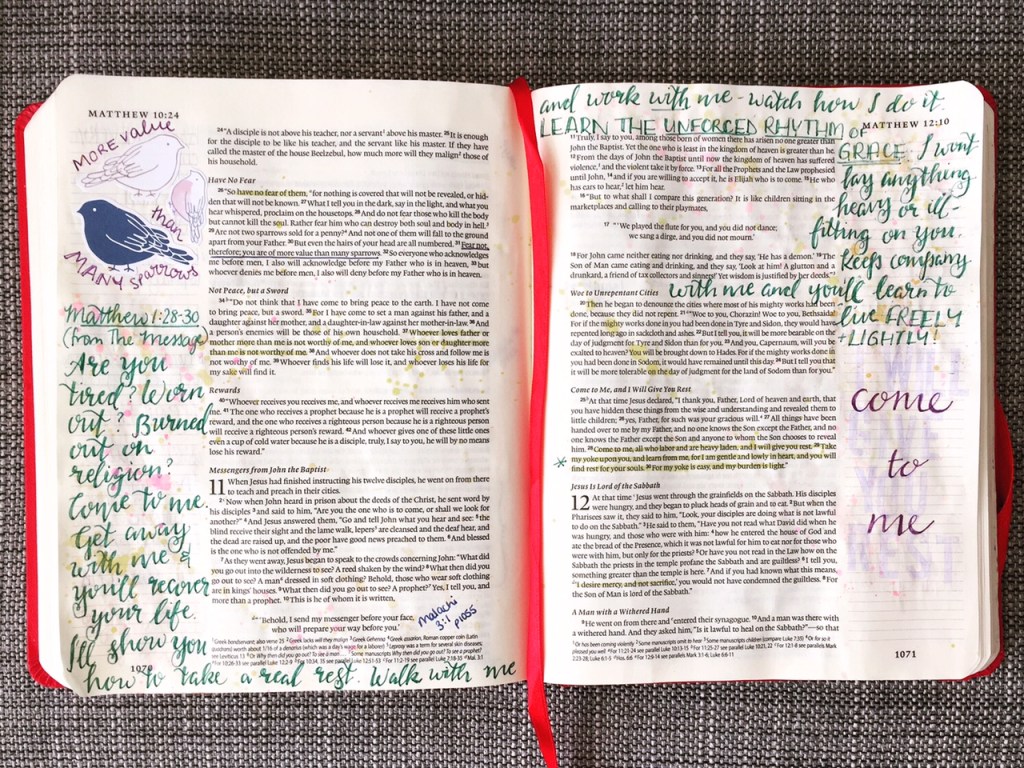 MATTHEW 10:24
MORE VALUE
than
MANY SPARROWS
Matthew 1:28-30
(from The Message)
Are you
tired? Worn
out? Burned
out on
religion?
Come to me.
Get away
with me &
you'll recover
your life.
I'll show you
how to take a real rest. Walk with me
24 "A disciple is not above his teacher, nor a servant above his master. 25 It is enough
for the disciple to be like his teacher, and the servant like his master. If they have
called the master of the house Beelzebul, how much more will they malign those of
his household.
Have No Fear
26 "So have no fear of them, for nothing is covered that will not be revealed, or hid-
den that will not be known. 27 What I tell you in the dark, say in the light, and what you
hear whispered, proclaim on the housetops. 28 And do not fear those who kill the body
but cannot kill the soul. Rather fear him who can destroy both soul and body in hell.
29 Are not two sparrows sold for a penny? And not one of them will fall to the ground
apart from your Father. 30 But even the hairs of your head are all numbered. 31 Fear not,
therefore; you are of more value than many sparrows. 32 So everyone who acknowledges
me before men, I also will acknowledge before my Father who is in heaven, 33 but
whoever denies me before men, I also will deny before my Father who is in heaven.
Not Peace, but a Sword
34 "Do not think that I have come to bring peace to the earth. I have not come
to bring peace, but a sword. 35 For I have come to set a man against his father, and a
daughter against her mother, and a daughter-in-law against her mother-in-law. 36 And
a person's enemies will be those of his own household. 37 Whoever loves father or
mother more than me is not worthy of me, and whoever loves son or daughter more
than me is not worthy of me. 38 And whoever does not take his cross and follow me is
not worthy of me. 39 Whoever finds his life will lose it, and whoever loses his life for
my sake will find it.
Rewards
40 "Whoever receives you receives me, and whoever receives me receives him who sent
me. 41 The one who receives a prophet because he is a prophet will receive a prophet's
reward, and the one who receives a righteous person because he is a righteous person
will receive a righteous person's reward. 42 And whoever gives one of these little ones
even a cup of cold water because he is a disciple, truly, I say to you, he will by no means
lose his reward."
Messengers from John the Baptist
11 When Jesus had finished instructing his twelve disciples, he went on from there
to teach and preach in their cities.
2 Now when John heard in prison about the deeds of the Christ, he sent word by
his disciples 3 and said to him, "Are you the one who is to come, or shall we look for
another?" 4 And Jesus answered them, "Go and tell John what you hear and see: 5 the
blind receive their sight and the lame walk, lepers are cleansed and the deaf hear, and
the dead are raised up, and the poor have good news preached to them. 6 And blessed
is the one who is not offended by me."
7 As they went away, Jesus began to speak to the crowds concerning John: "What did
you go out into the wilderness to see? A reed shaken by the wind? 8 What then did you
go out to see? A man dressed in soft clothing? Behold, those who wear soft clothing
are in kings' houses. 9 What then did you go out to see? A prophet? Yes, I tell you, and
more than a prophet. 10 This is he of whom it is written,
"'Behold, I send my messenger before your face,
who will prepare your way before you.'
malachi
3:1
1070
MATTHEW 12:10
and work with me - watch how I do it.
LEARN THE UNFORCED RHYTHM OF
GRACE. I wont
lay anything
heavy or ill-
fitting on you.
Keep company
with me and you'll learn to
live FREELY
+ LIGHTLY!
come
to
me
11 Truly, I say to you, among those born of women there has arisen no one greater than
John the Baptist. Yet the one who is least in the kingdom of heaven is greater than he.
12 From the days of John the Baptist until now the kingdom of heaven has suffered
violence, and the violent take it by force. 13 For all the Prophets and the Law prophesied
until John, 14 and if you are willing to accept it, he is Elijah who is to come. 15 He who
has ears to hear, let him hear.
16 "But to what shall I compare this generation? It is like children sitting in the
marketplaces and calling to their playmates,
17 "'We played the flute for you, and you did not dance;
we sang a dirge, and you did not mourn.'
18 For John came neither eating nor drinking, and they say, 'He has a demon.' 19 The
Son of Man came eating and drinking, and they say, 'Look at him! A glutton and a
drunkard, a friend of tax collectors and sinners!' Yet wisdom is justified by her deeds."
Woe to Unrepentant Cities
20 Then he began to denounce the cities where most of his mighty works had been
done, because they did not repent. 21 "Woe to you, Chorazin! Woe to you, Bethsaida!
For if the mighty works done in you had been done in Tyre and Sidon, they would have
repented long ago in sackcloth and ashes. 22 But I tell you, it will be more bearable on the
day of judgment for Tyre and Sidon than for you. 23 And you, Capernaum, will you be
exalted to heaven? You will be brought down to Hades. For if the mighty works done in
you had been done in Sodom, it would have remained until this day. 24 But I tell you that
it will be more tolerable on the day of judgment for the land of Sodom than for you."
Come to Me, and I Will Give You Rest
25 At that time Jesus declared, "I thank you, Father, Lord of heaven and earth, that
you have hidden these things from the wise and understanding and revealed them to
little children; 26 yes, Father, for such was your gracious will. 27 All things have been
handed over to me by my Father, and no one knows the Son except the Father, and no
one knows the Father except the Son and anyone to whom the Son chooses to reveal
him. 28 Come to me, all who labor and are heavy laden, and I will give you rest. 29 Take
my yoke upon you, and learn from me, for I am gentle and lowly in heart, and you will
find rest for your souls. 30 For my yoke is easy, and my burden is light."
Jesus Is Lord of the Sabbath
12 At that time Jesus went through the grainfields on the Sabbath. His disciples
were hungry, and they began to pluck heads of grain and to eat. 2 But when the
Pharisees saw it, they said to him, "Look, your disciples are doing what is not lawful
to do on the Sabbath." 3 He said to them, "Have you not read what David did when he
was hungry, and those who were with him: 4 how he entered the house of God and
ate the bread of the Presence, which it was not lawful for him to eat nor for those who
were with him, but only for the priests? 5 Or have you not read in the Law how on the
Sabbath the priests in the temple profane the Sabbath and are guiltless? 6 I tell you,
something greater than the temple is here. 7 And if you had known what this means,
'I desire mercy, and not sacrifice,' you would not have condemned the guiltless. 8 For
the Son of Man is lord of the Sabbath."
A Man with a Withered Hand
9 He went on from there and entered their synagogue. 10 And a man was there with
a withered hand. And they asked him, "Is it lawful to heal on the Sabbath?"—so that
1071